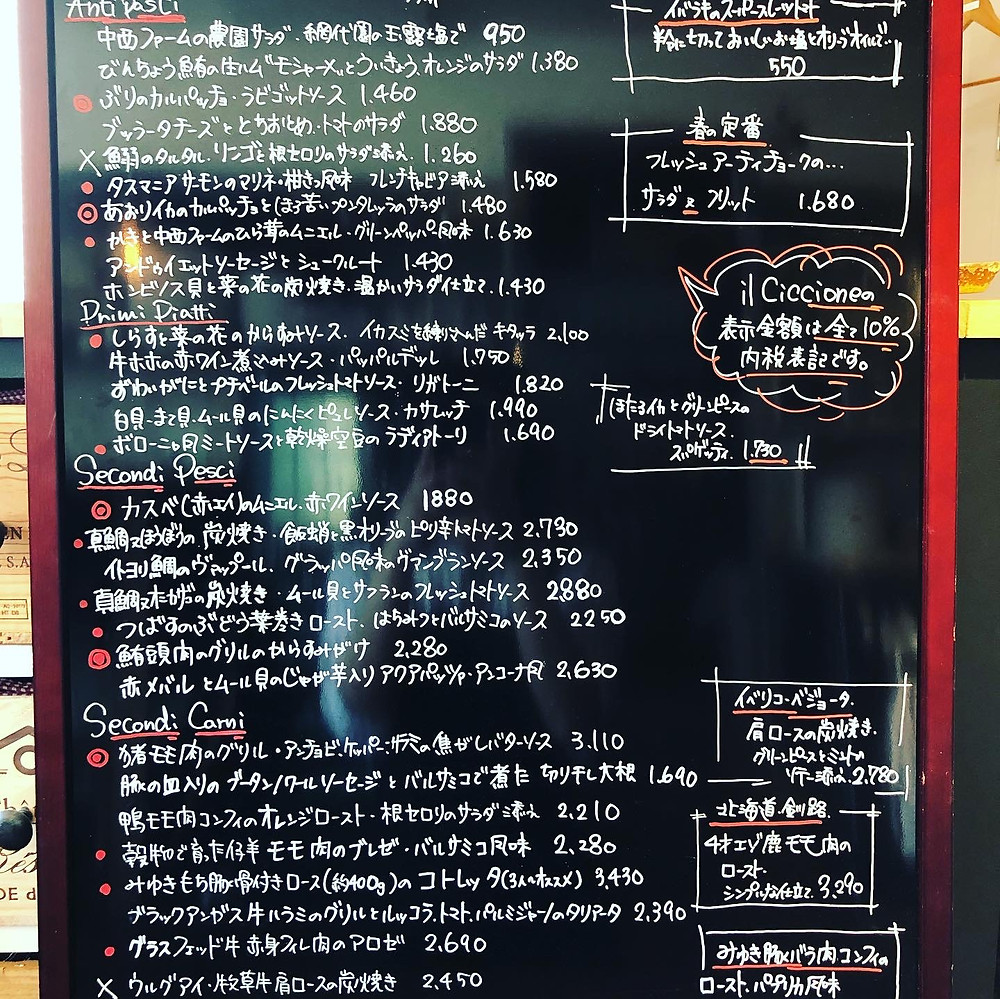 Antipasti
中西ファームの農園サラダ・網代園の玉露塩で 950
びんちょう鮪の生ハム"モシャーメ"とういきょう、オレンジのサラダ 1.380
ぶりのカルパッチョ・ラビゴットソース 1.460
ブッラータチーズととちおとめ・トマトのサラダ 1.880
X 鰯のタルタル・リンゴと根セロリのサラダ添え 1.260
タスマニアサーモンのマリネ・柑きつ風味 フレンチキャビア添え 1.580
あおりイカのカルパッチョとほろ苦いプンタレッラのサラダ 1.480
かきと中西ファームのひら茸のムニエル・グリーンペッパー風味 1.630
アンドゥイエットソーセージとシュークルート 1.430
ホンビノス貝と菜の花の炭焼き・温かいサラダ仕立て 1.430
Primi Piatti
しらすと菜の花のからすみソース・イカスミを練り込んだキタッラ 2,100
牛ホホの赤ワイン煮込みソース・パッパルデッレ 1.750
ずわいがにとプチベールのフレッシュトマトソース・リガトーニ 1.820
白貝・まて貝・ムール貝のにんにくピュレソース・カサレッチ 1.990
ボローニャ風ミートソースと乾燥空豆のラディアトーリ 1.690
Secondi Pesci
カスベ(赤エイ)のムニエル・赤ワインソース 1880
真鯛又はほうぼうの炭焼き・飯蛸と黒オリーブのピリ辛トマトソース 2.730
イトヨリ鯛のヴァプール・グラッパ風味のヴァンブランソース 2,350
真鯛又はの炭焼き・ムール貝とサフランのフレッシュトマトソース 2880
つばすのぶどう葉巻きロースト、はちみつとバルサミコのソース 2250
鮪頭肉のグリルのからすみがけ 2.280
赤メバルとムール貝のじゃが芋入りアクアパッツァ・アンコーナ風 2,630
Secondi Carni
猪モモ肉のグリル・アンチョビ、ケッパー、の焦がしバターソース 3.110
豚の血入りのブータン/ワールソーセージとバルサミコで煮た切り干し大根 1.690
鴨モモ肉コンフィのオレンジロースト・根セロリのサラダ添え 2,210
穀物で育った仔羊モモ肉のブレゼ・バルサミコ風味 2,280
みゆきもち豚骨付きロース(約400g)のコトレッタ(3人〜オススメ) 3,430
ブラックアンガス牛ハラミのグリルとルッコラ、トマト、パルミジャーノのタリアータ 2,390
グラスフェッド牛赤身フィレ肉のアロゼ 2,690
X ウルグアイ・牧草牛肩ロースの炭焼き 2,450
イバラキのスーパースルートマト
半分に切っておいしいお塩とオリーブオイルで…
550
春の定番
フレッシュアーティチョークの…
サラダ又フリット 1.680
il Ciccioneの
表示金額は全て10%
内税表記です。
ほたるイカとグリーンピースの
ドライトマトソース、
スパゲッティ 1.730
イベリコ・ベジョータ
肩ロースの炭焼き、
グリーンピースとミントの
ソテー添え 2.780
北海道・釧路
4才エゾ鹿モモ肉の
ロースト、
シンプルな仕立て 3,290
みゆき豚バラ肉コンフィの
ロースト、パプリカ風味